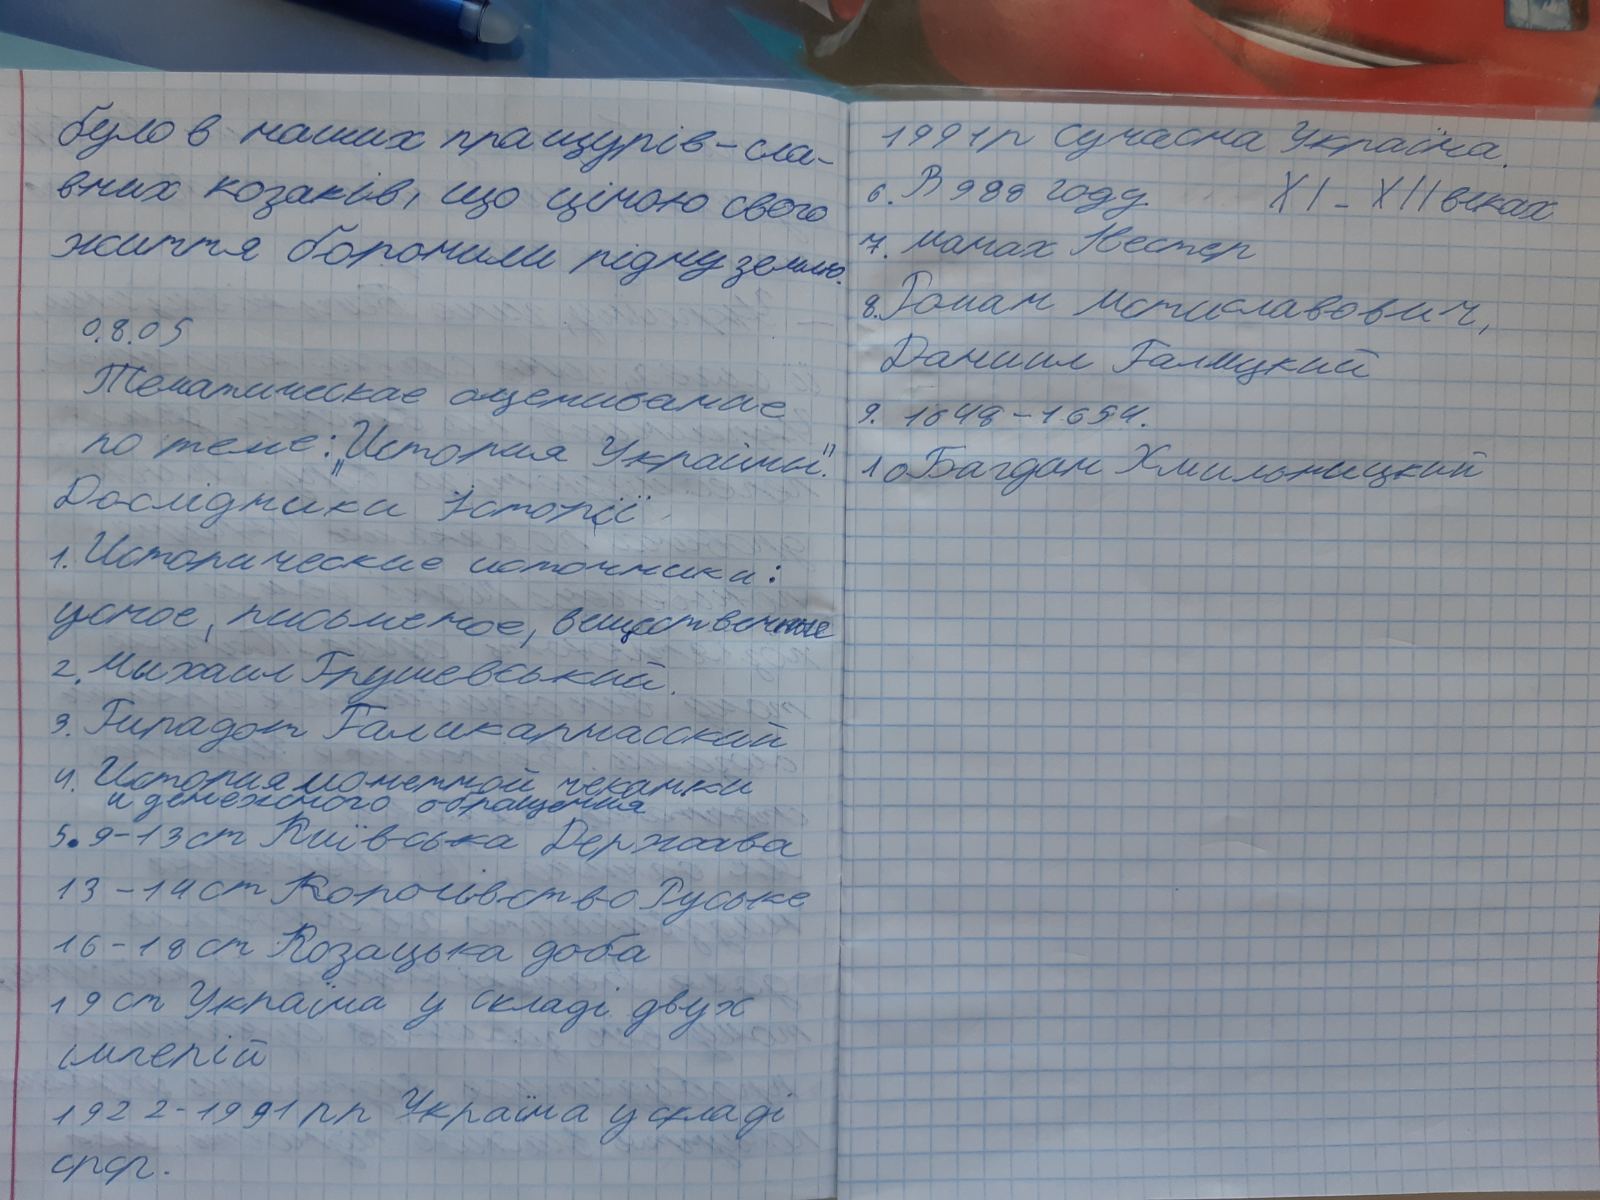 було в наших пращурів-сла-
вних козаків, що ціною свого
життя боронили рідну землю.
0.8.05
Тематическае оценивание
по теме: "История Украины".
Дослідники Історії
1. Исторические источники:
усное, письменое, вещественные
2. Михаил Грушевський.
3. Гирадот Галикарнасский
4. История монетной чеканки
и денежного обращения
5. 9-13 ст Київська Держава
13-14 ст Королівство Руське
16-18 ст Козацька доба
19 ст Україна у складі двух
імперій
1922-1991 рр Україна у складі
срср.
1991 р Сучасна Україна.
6. В 988 году. XI - XII веках
7. Манах Нестер
8. Роман Мстиславович,
Даниил Галицкий
9. 1648-1654.
10 Багдан Хмильницкий